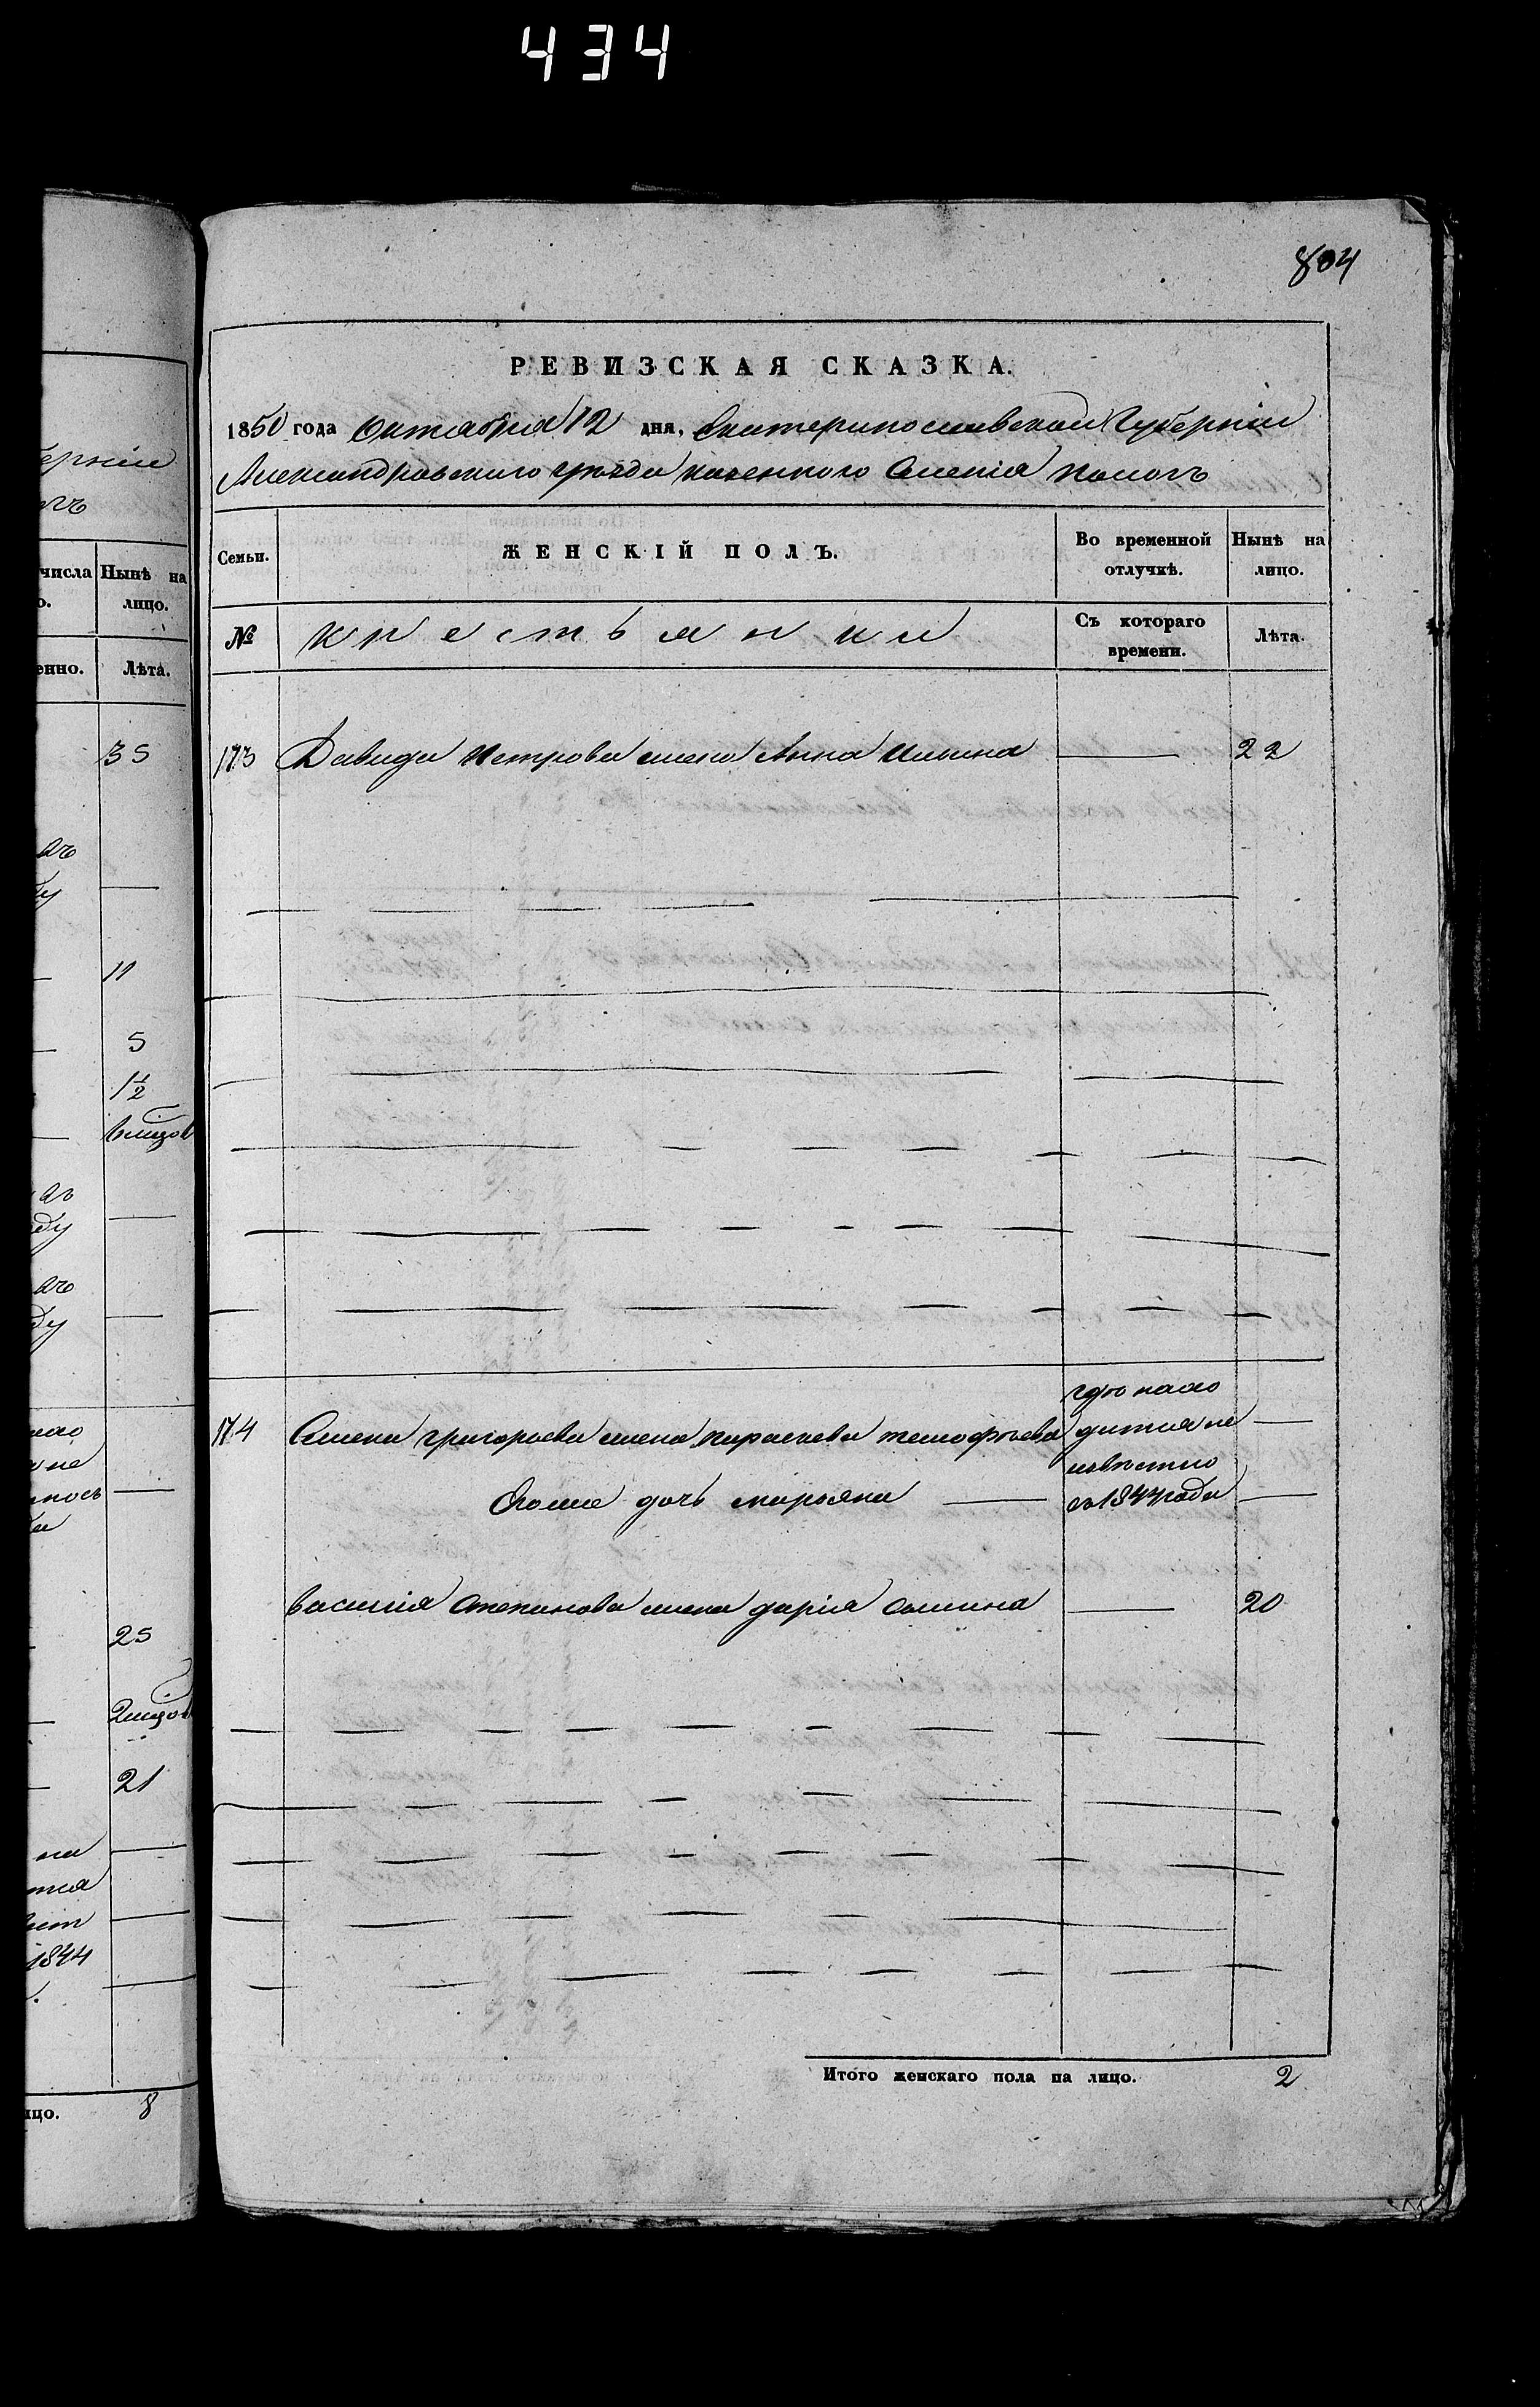 434
804
ерніи
РЕВИЗСКАЯ СКАЗКА.
1850 года Октября 12 дня, Екатеринославской Губерніи
Александровского уѣзда казенного Селенія Конокъ
числа Нынѣ на
лицо.
енно. Лѣта.
35
11
5
1½
25
21
1844
лицо. 8
Семьи. ЖЕНСКІЙ ПОЛЪ. Во временной отлучкѣ. Нынѣ на лицо.
№ крестьянки Съ котораго времени. Лѣта.
173 Давида Петрова жена Анна Ильина — 22
174 Семена григорьева жена параскева тимофѣева
где нахо
дится не
извѣстно
съ 1844 года —
Ихоже дочь марьяна — —
василія Степанова жена дарія Савина — 20
Итого женскаго пола на лицо. 2